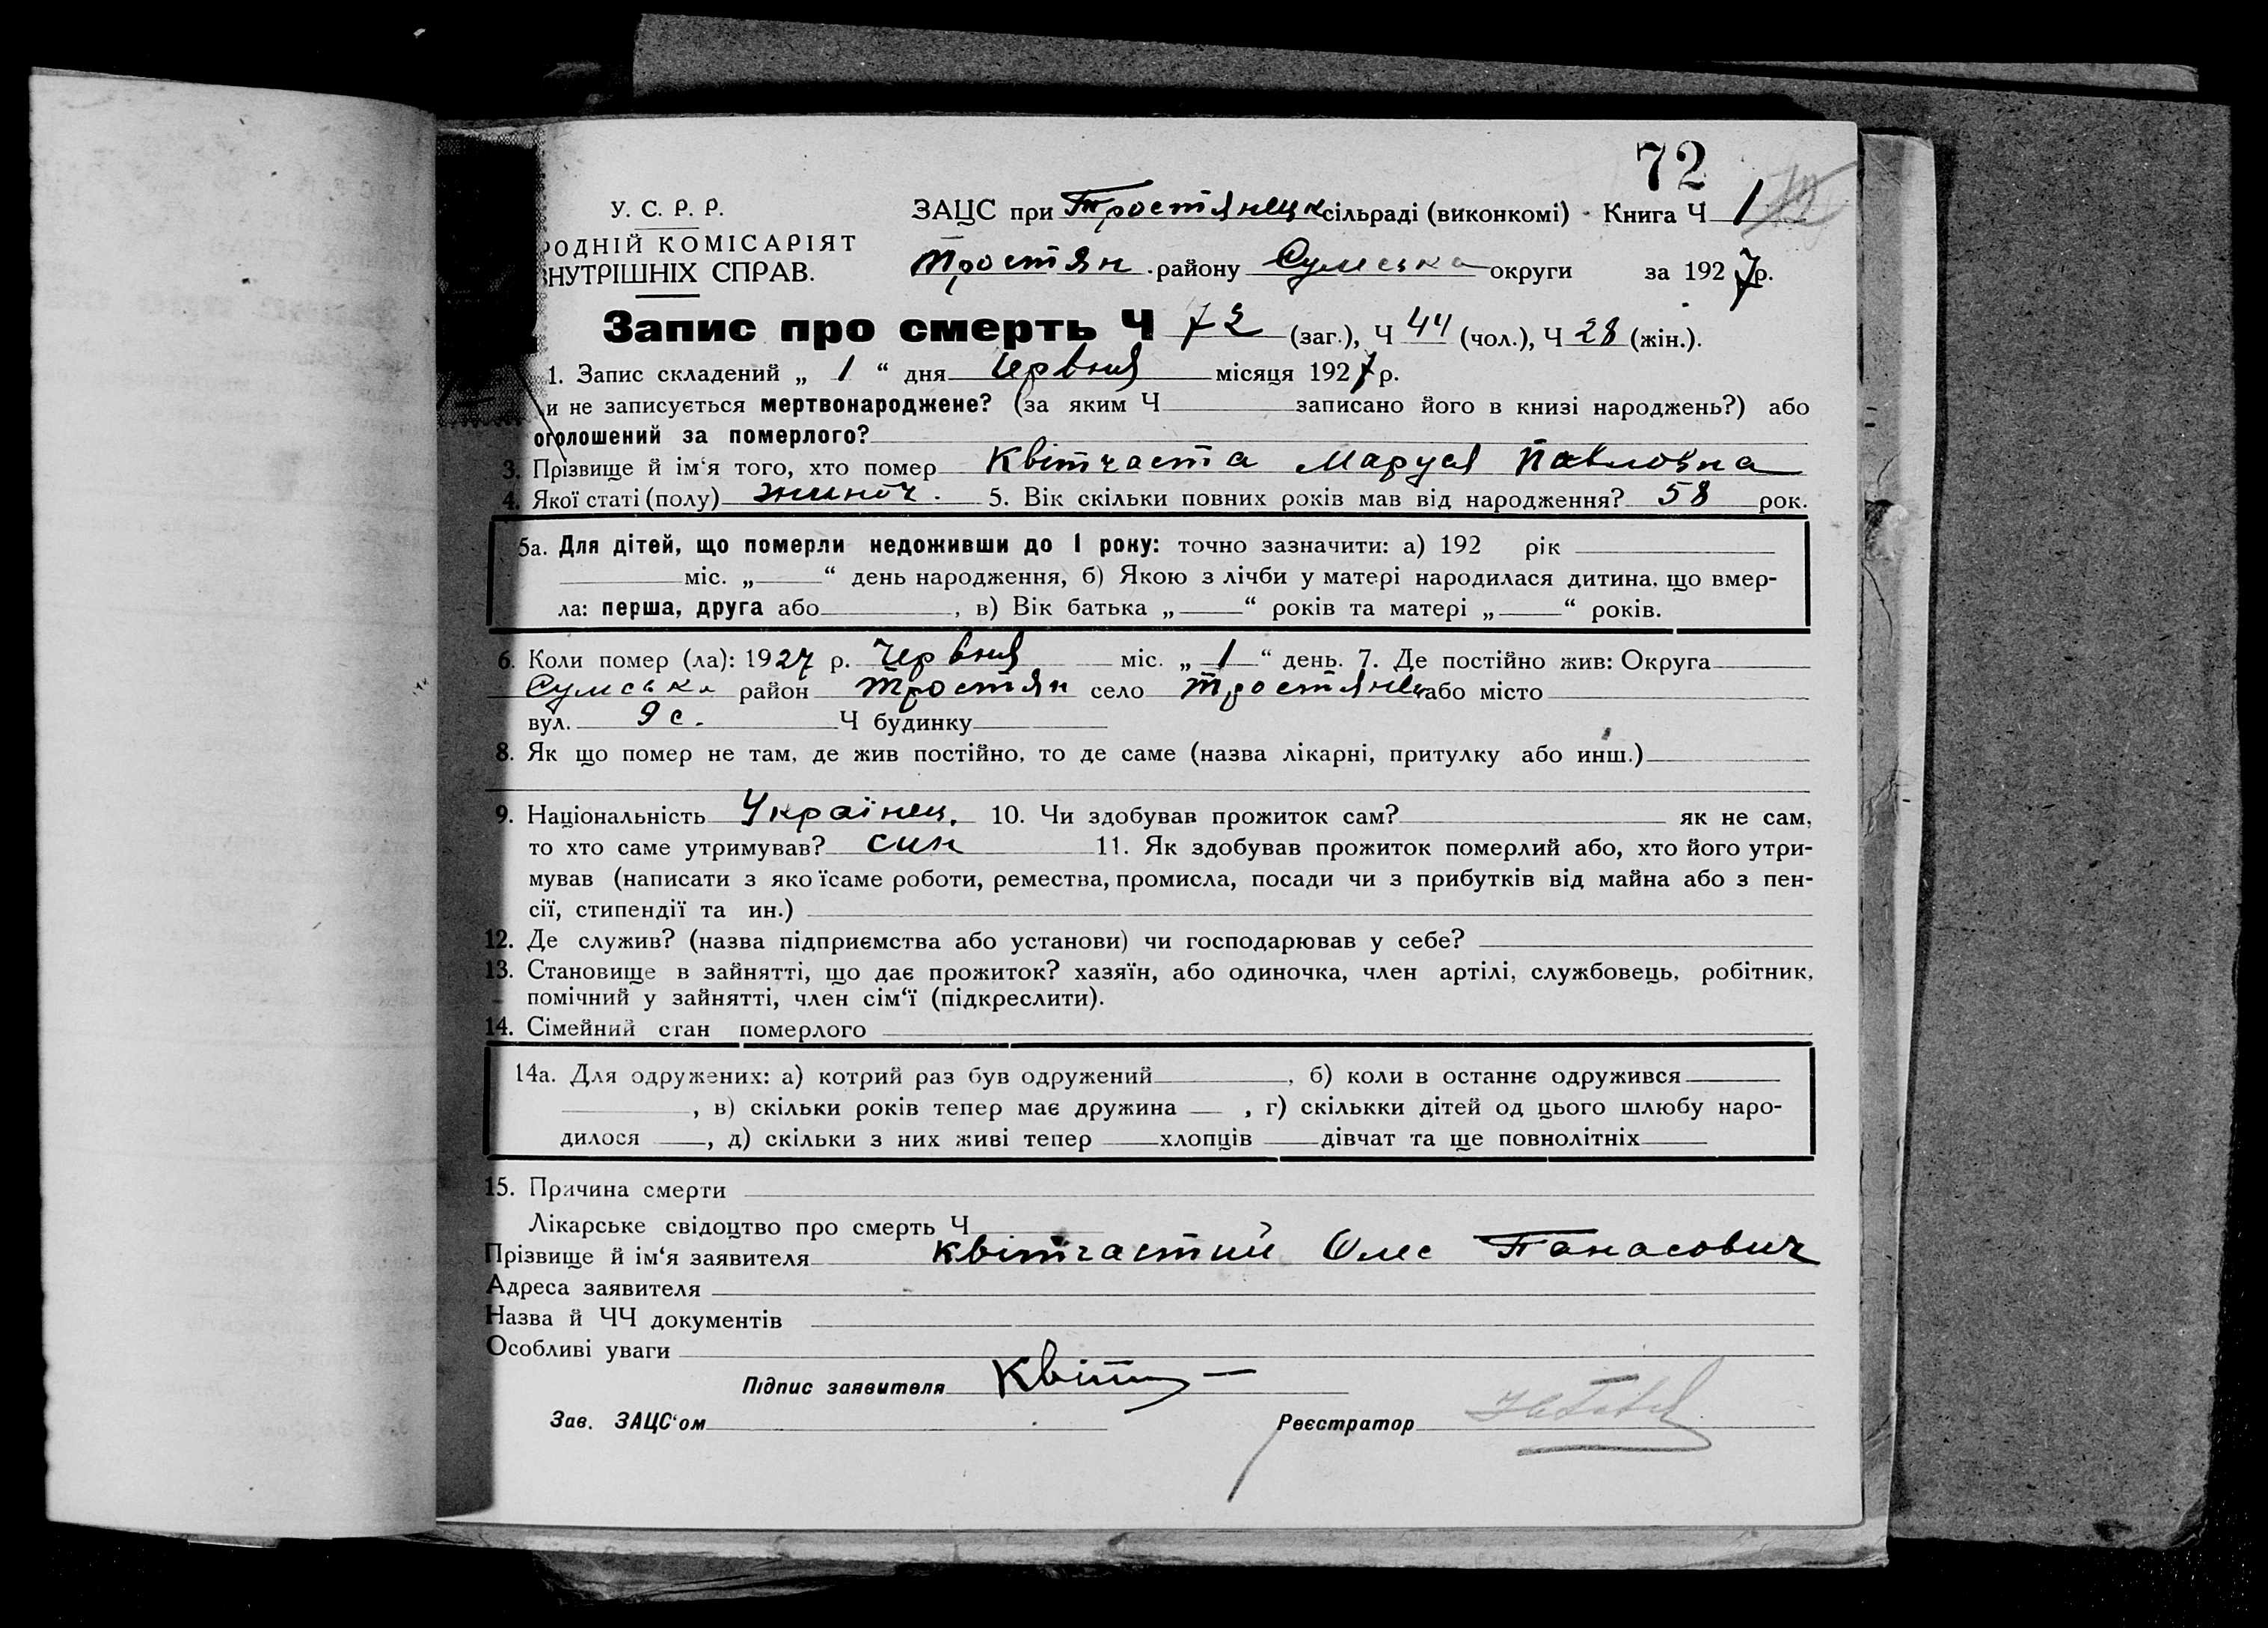 72
У. С. Р. Р.
РОДНІЙ КОМІСАРІЯТ
ВНУТРІШНІХ СПРАВ.
ЗАЦС при Тростянецьк сільраді (виконкомі) - Книга Ч 1
Тростян. району Сумська округи за 1927 р.
Запис про смерть Ч 72 (заг.), Ч 44 (чол.), Ч 28 (жін.).
1. Запис складений „ 1 “ дня червня місяця 1927 р.
и не записується мертвонароджене? (за яким Ч записано його в книзі народжень?) або
оголошений за померлого?
3. Прізвище й ім‘я того, хто помер Квітчаста Маруся Павловна
4. Якої статі (полу) жиноч. 5. Вік скільки повних років мав від народження? 58 рок.
5а. Для дітей, що померли недоживши до 1 року: точно зазначити: а) 192 рік
міс. „ “ день народження, б) Якою з лічби у матері народилася дитина, що вмер-
ла: перша, друга або , в) Вік батька „ “ років та матері „ “ років.
6. Коли помер (ла): 1927 р. Червня міс. „ 1 “ день. 7. Де постійно жив: Округа
Сумська район Тростян село Тростянець або місто
вул. 9 с. Ч будинку
8. Як що помер не там, де жив постійно, то де саме (назва лікарні, притулку або инш.)
9. Національність Українец. 10. Чи здобував прожиток сам? як не сам,
то хто саме утримував? син 11. Як здобував прожиток померлий або, хто його утри-
мував (написати з яко їсаме роботи, ремества, промисла, посади чи з прибутків від майна або з пен-
сії, стипендії та ин.)
12. Де служив? (назва підприємства або установи) чи господарював у себе?
13. Становище в зайнятті, що дає прожиток? хазяїн, або одиночка, член артілі, службовець, робітник,
помічний у зайнятті, член сім‘ї (підкреслити).
14. Сімейний стан померлого
14а. Для одружених: а) котрий раз був одружений , б) коли в останнє одружився
, в) скільки років тепер має дружина , г) скількки дітей од цього шлюбу наро-
дилося , д) скільки з них живі тепер хлопців дівчат та ще повнолітніх
15. Причина смерти
Лікарське свідоцтво про смерть Ч
Прізвище й ім‘я заявителя Квітчастий Олес Панасович
Адреса заявителя
Назва й ЧЧ документів
Особливі уваги
Підпис заявителя Квітч
Зав. ЗАЦС‘ом Реєстратор